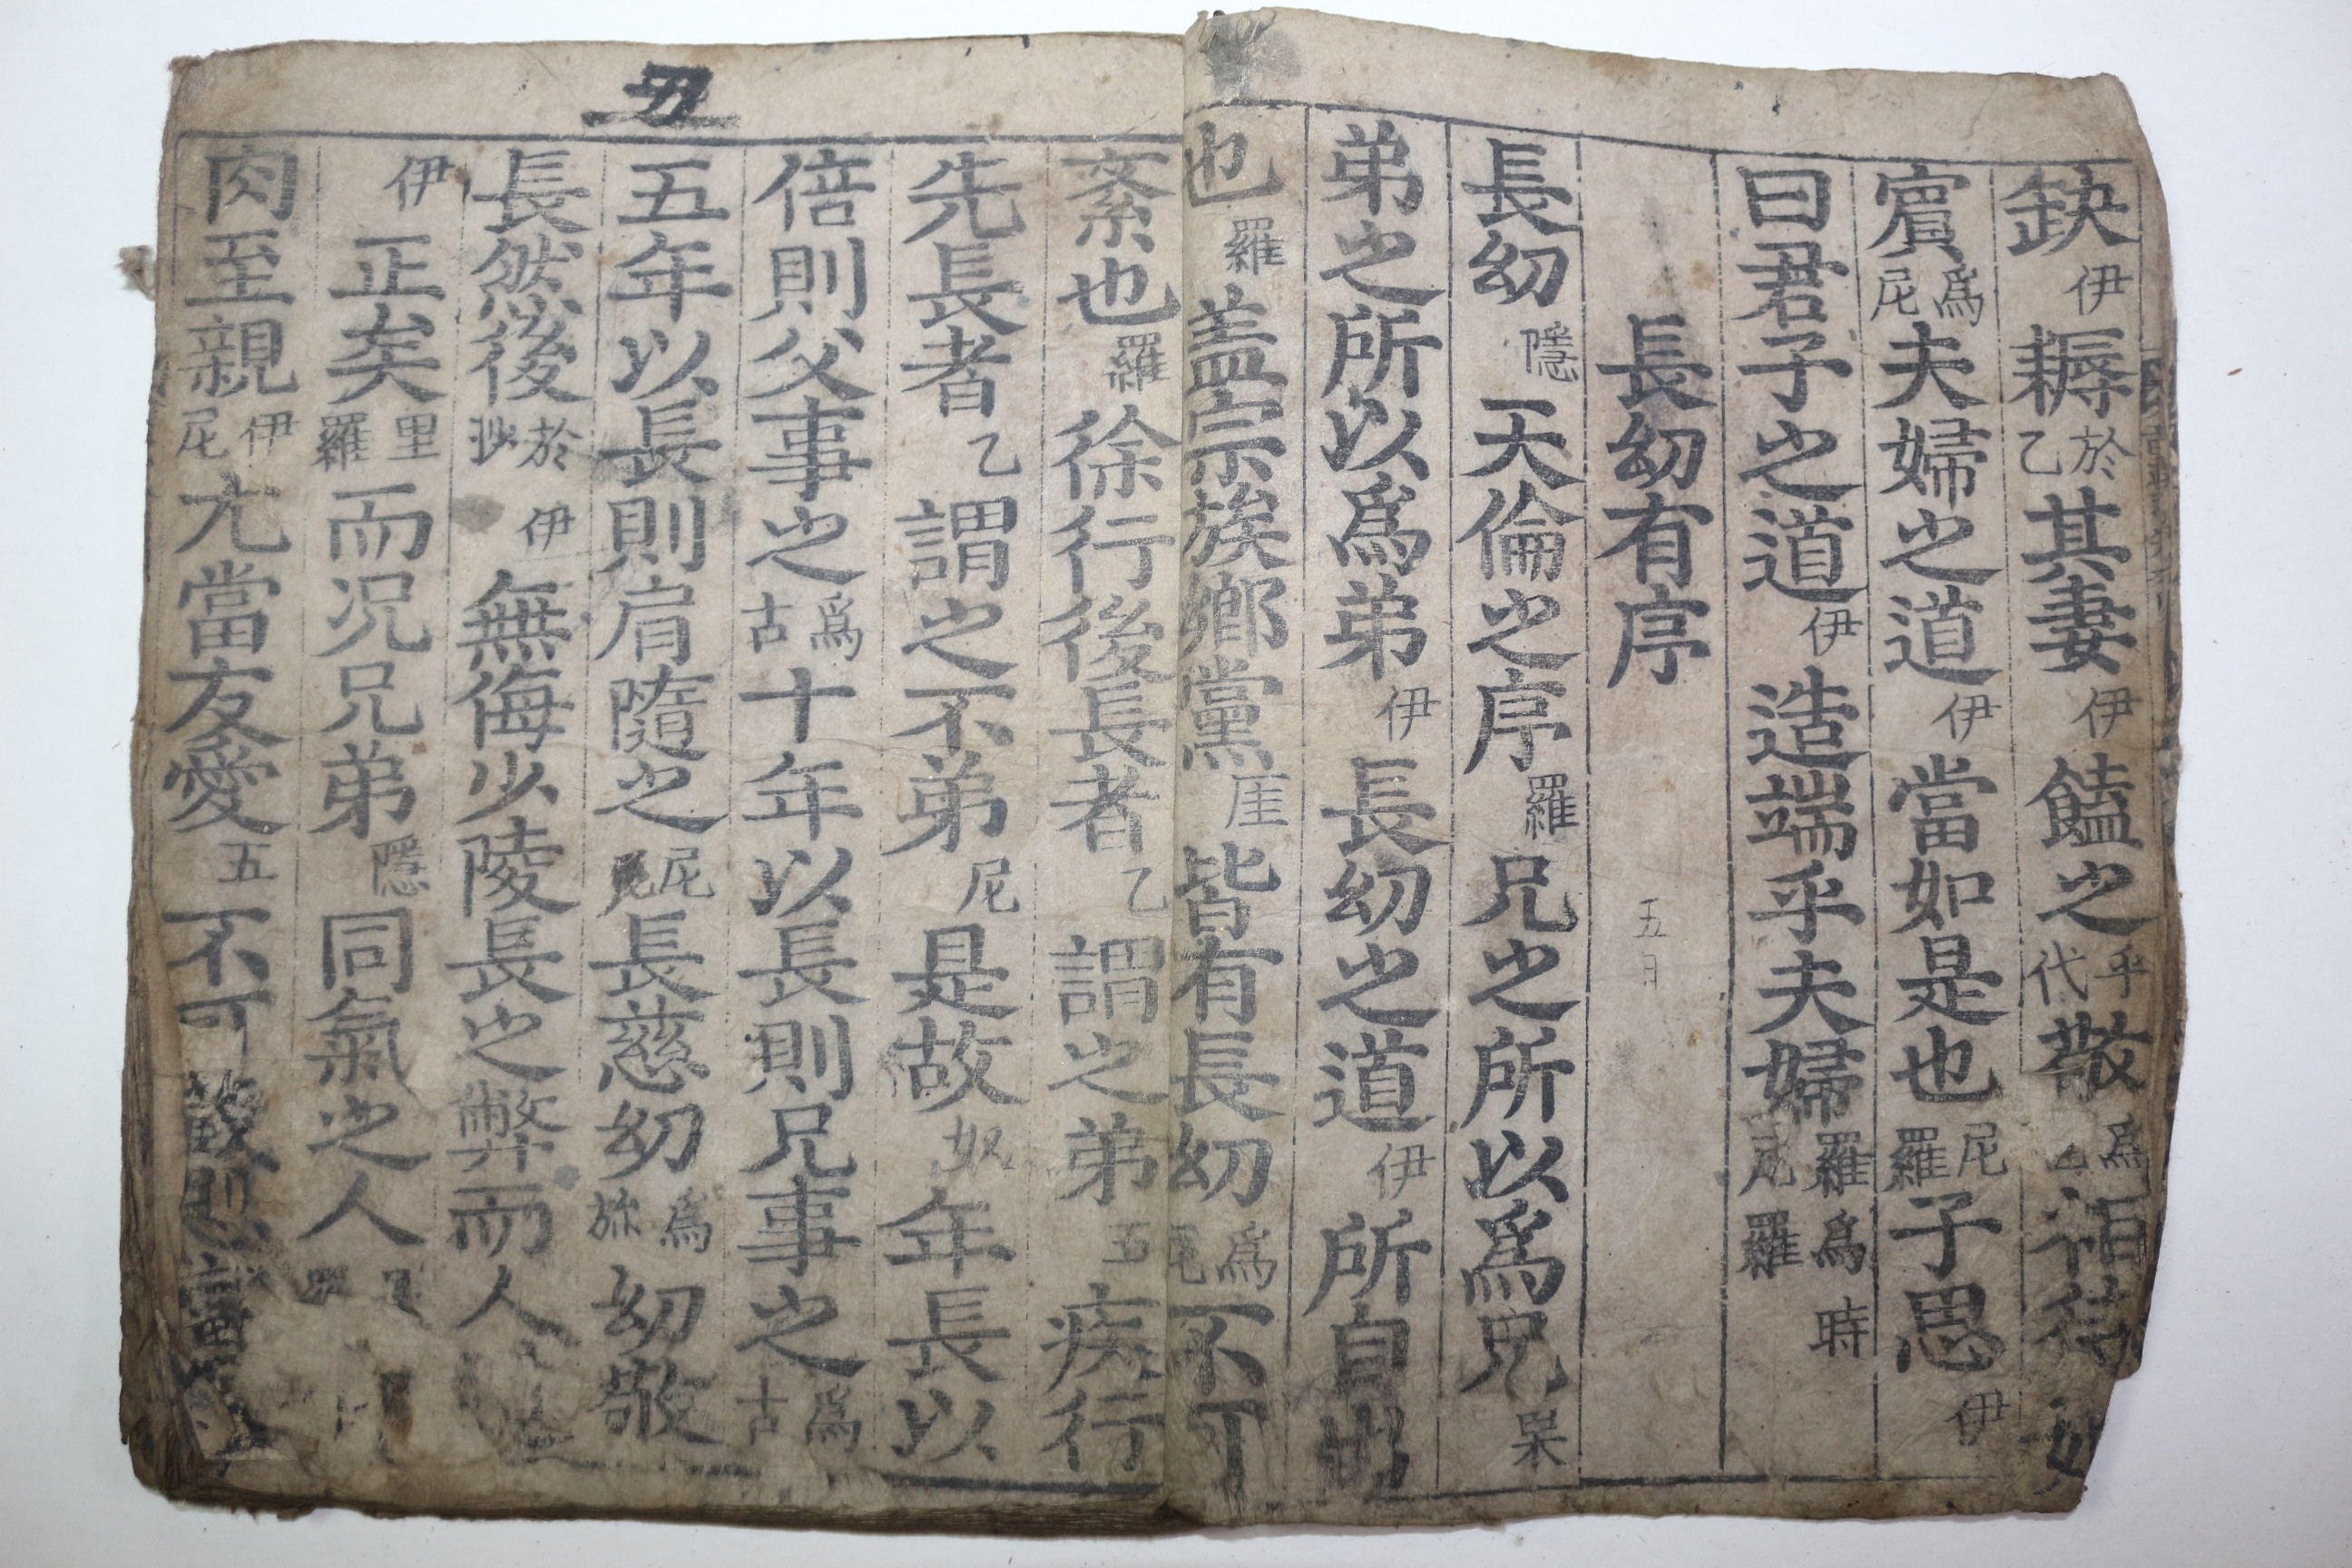 缺伊耨於乙其妻伊饁之乎代敬爲乙相待如
賓爲尼夫婦之道伊當如是也尼羅子思伊
曰君子之道伊造端乎夫婦羅爲時尼羅
長幼有序
五月
長幼隱天倫之序羅兄之所以爲兄果
弟之所以爲弟伊長幼之道伊所自出
也羅盖宗族鄕黨厓皆有長幼爲尼不可
丑
紊也羅徐行後長者乙謂之弟五疾行
先長者乙謂之不弟尼是故奴年長以
倍則父事之爲古十年以長則兄事之爲古
五年以長則肩隨之尼長慈幼爲旀幼敬
長然後於沙伊無侮少陵長之弊而人
伊正矣里羅而况兄弟隱同氣之人
肉至親伊尼尤當友愛五不可藏怒